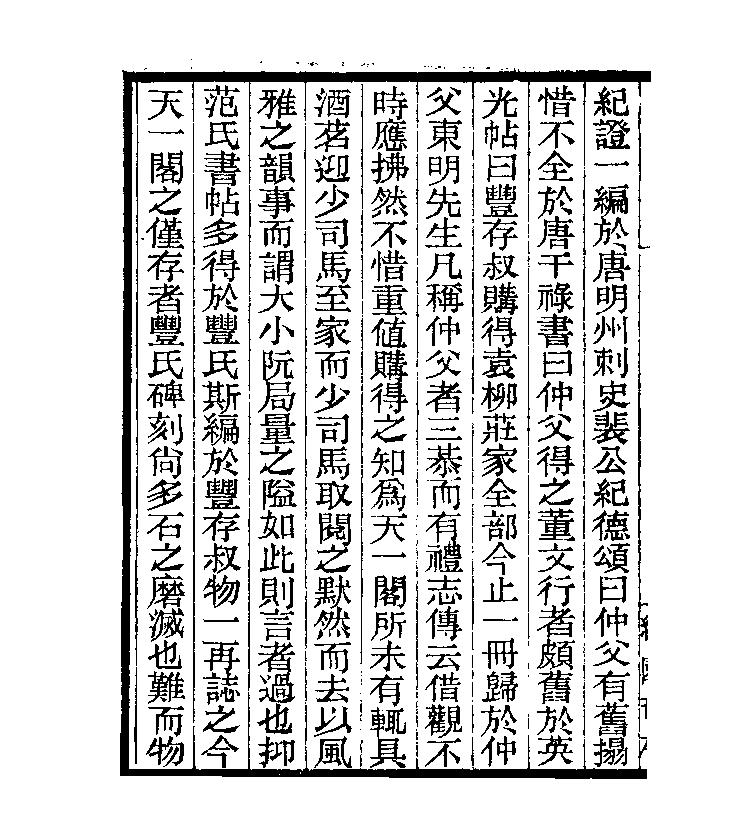 紀證一編於唐明州刺史裴公紀德頌曰仲父有舊搨
惜不全於唐干祿書曰仲父得之董文行者頗舊於英
光帖曰豐存叔購得袁柳莊家全部今止一冊歸於仲
父東明先生凡稱仲父者三恭而有禮志傳云借觀不
時應拂然不惜重値購得之知爲天一閣所未有輒具
酒茗迎少司馬至家而少司馬取閱之默然而去以風
雅之韻事而謂大小阮局量之隘如此則言者過也抑
范氏書帖多得於豐氏斯編於豐存叔物一再誌之今
天一閣之僅存者豐氏碑刻尙多石之磨滅也難而物